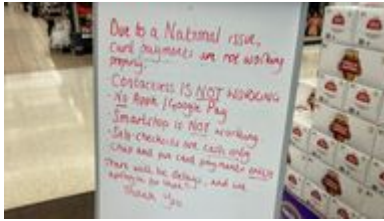 Due to a National issue,
Card payments are not working
properly.
- Contactless IS NOT WORKING
- No Apple/Google Pay
- Smartshop is NOT working
- Self-checkouts are cash only
- Chip and pin card payments ONLY
There will be delays, and we
apologise for that.
Thank you